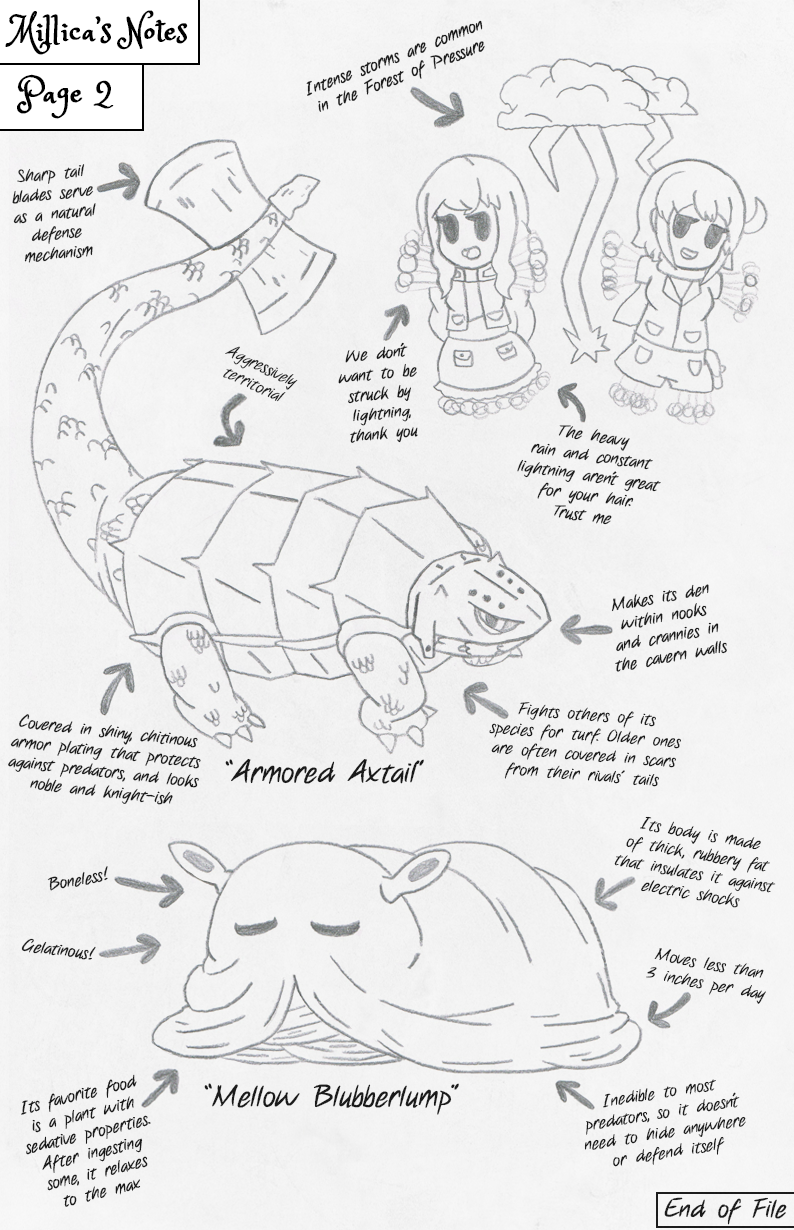 Millica's Notes
Page 2
Intense storms are common
in the Forest of Pressure
Sharp tail
blades serve
as a natural
defense
mechanism
Aggressively
territorial
We don't
want to be
struck by
lightning,
thank you
The heavy
rain and constant
lightning aren't great
for your hair.
Trust me
Makes its den
within nooks
and crannies in
the cavern walls
Covered in shiny, chitinous
armor plating that protects
against predators, and looks
noble and knight-ish
Fights others of its
species for turf. Older ones
are often covered in scars
from their rivals' tails
"Armored Axtail"
Boneless!
Gelatinous!
Its body is made
of thick, rubbery fat
that insulates it against
electric shocks
Moves less than
3 inches per day
Its favorite food
is a plant with
sedative properties.
After ingesting
some, it relaxes
to the max
"Mellow Blubberlump"
Inedible to most
predators, so it doesn't
need to hide anywhere
or defend itself
End of File